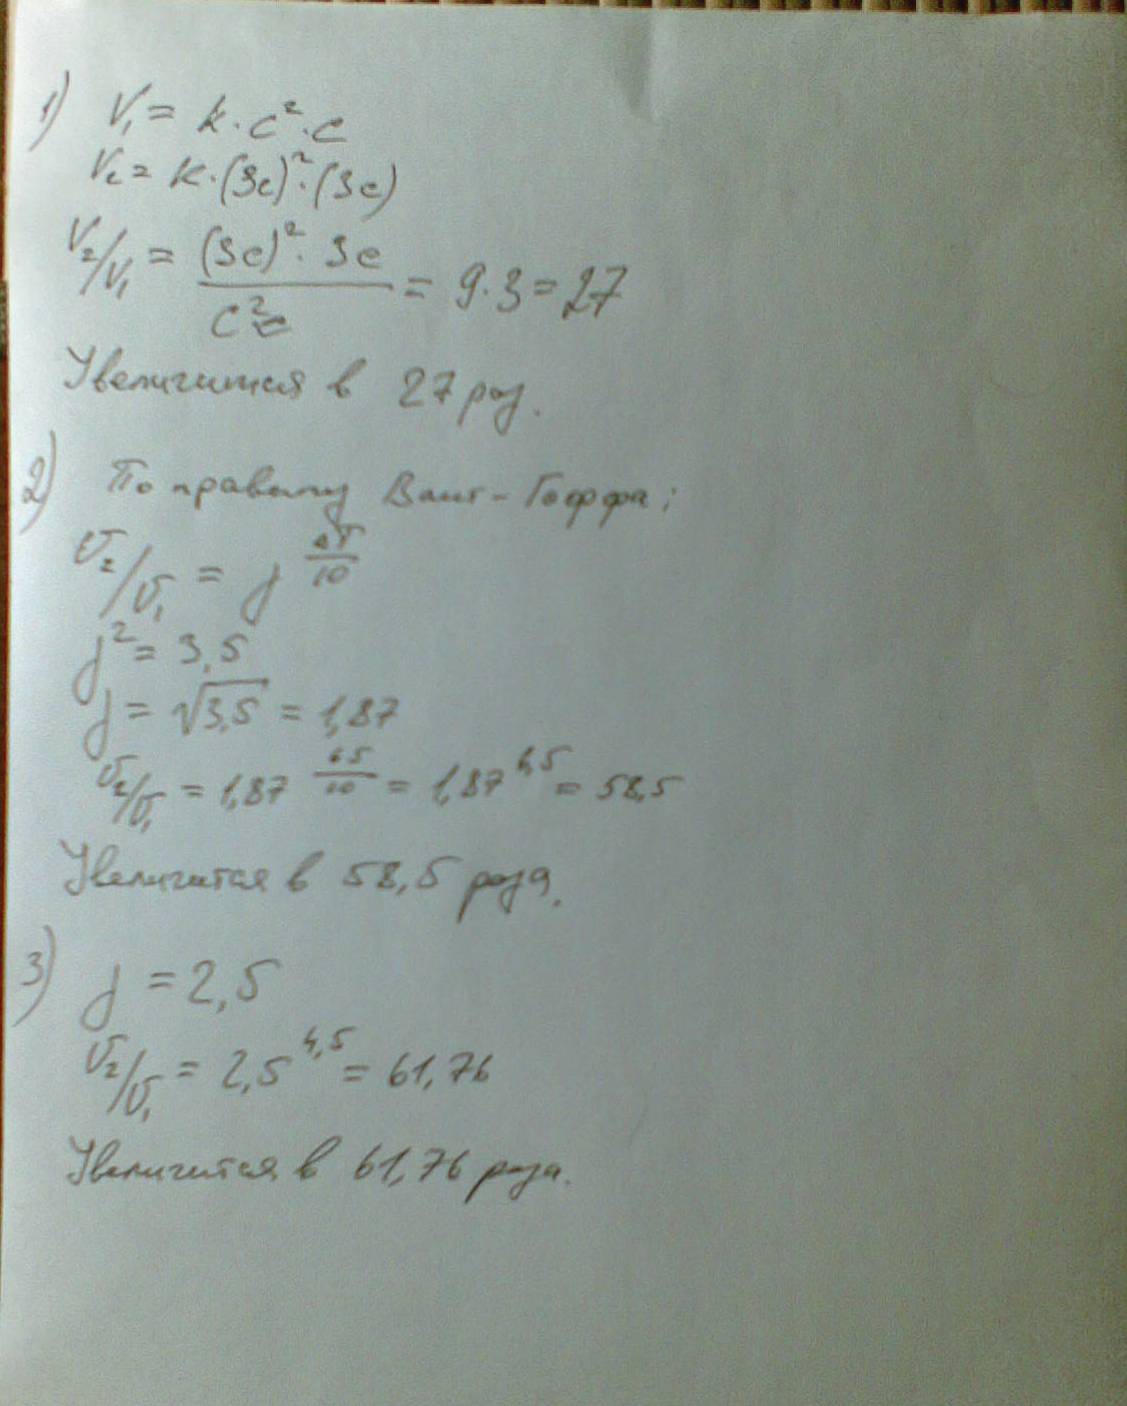 1) V₁ = k · c² · c
V₂ = k · (3c)² · (3c)
V₂/V₁ = (3c)² · 3c / c²c = 9 · 3 = 27
Увеличится в 27 раз.
2) По правилу Вант-Гоффа:
V₂/V₁ = γ^(ΔT/10)
γ² = 3,5
γ = √3,5 = 1,87
V₂/V₁ = 1,87^(65/10) = 1,87^6,5 = 58,5
Увеличится в 58,5 раза.
3) γ = 2,5
V₂/V₁ = 2,5^4,5 = 61,76
Увеличится в 61,76 раза.